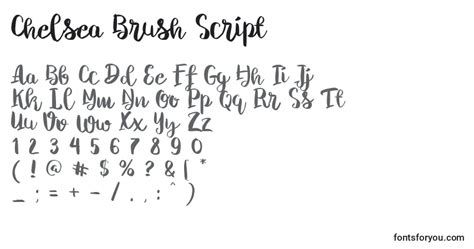 Chelsea Brush Script
Aa Bb Cc Dd Ee Ff Gg Hh Ii Jj
Kk Ll Mm Nn Oo Pp Qq Rr Ss Tt
Uu Vv Ww Xx Yy Zz
1 2 3 4 5 6 7 8 9 0
( ! @ # $ % ? & [ *
_ ; = + - / . , : ^ )
fontsforyou.com